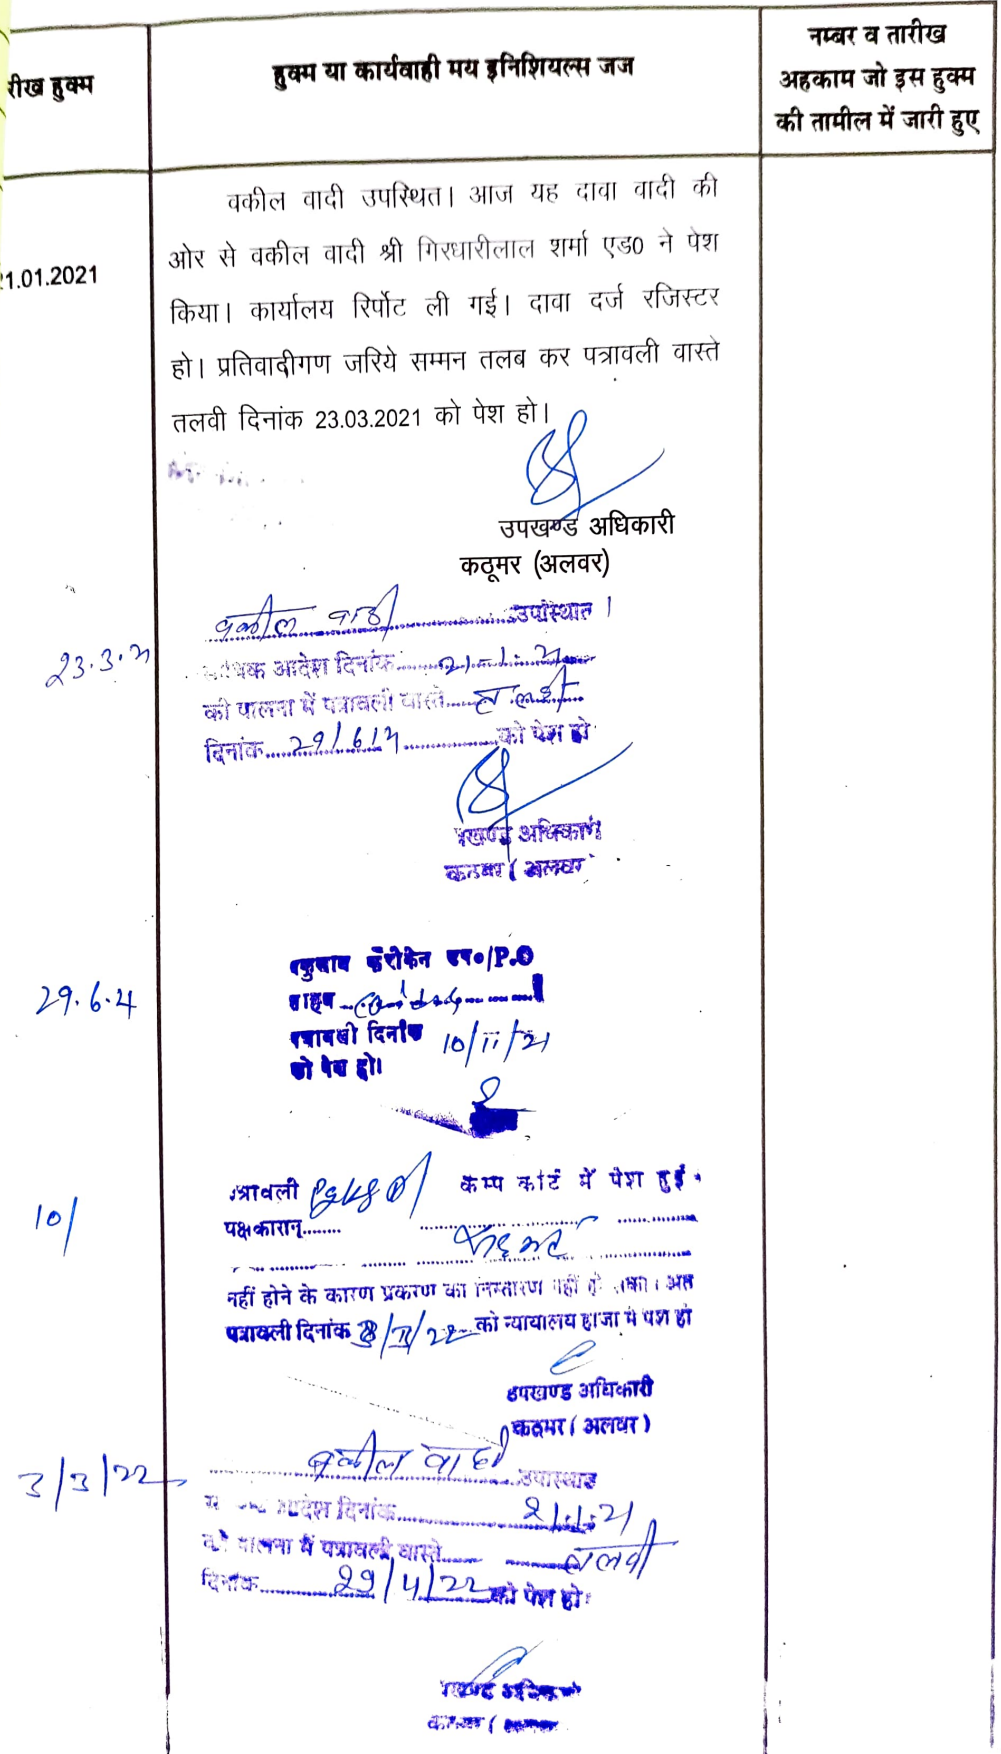 रीख हुक्म
हुक्म या कार्यवाही मय इनिशियल्स जज
नम्बर व तारीख
अहकाम जो इस हुक्म
की तामील में जारी हुए
1.01.2021
वकील वादी उपस्थित। आज यह दावा वादी की
ओर से वकील वादी श्री गिरधारीलाल शर्मा एड0 ने पेश
किया। कार्यालय रिर्पोट ली गई। दावा दर्ज रजिस्टर
हो। प्रतिवादीगण जरिये सम्मन तलब कर पत्रावली वास्ते
तलवी दिनांक 23.03.2021 को पेश हो।
उपखण्ड अधिकारी
कठूमर (अलवर)
23.3.21
वकील वादी उपस्थित।
आदेश दिनांक 21-1-21
की पालना में पत्रावली वास्ते तलवी
दिनांक 29/6/21 को पेश हो
खण्ड अधिकारी
कठूमर (अलवर
29.6.21
P.O
पत्रावली दिनांक 10/11/21
को पेश हो।
10/
पत्रावली कैम्प कोर्ट में पेश हुई
पक्षकारान्
नहीं होने के कारण प्रकरण का निस्तारण नहीं हो सका। अत
पत्रावली दिनांक को न्यायालय हाजा में पेश हो
उपखण्ड अधिकारी
कठूमर (अलवर)
3/3/22
वकील वादी
आदेश दिनांक 21.1.21
की पालना में पत्रावली वास्ते तलवी
दिनांक 29/4/22 को पेश हो।